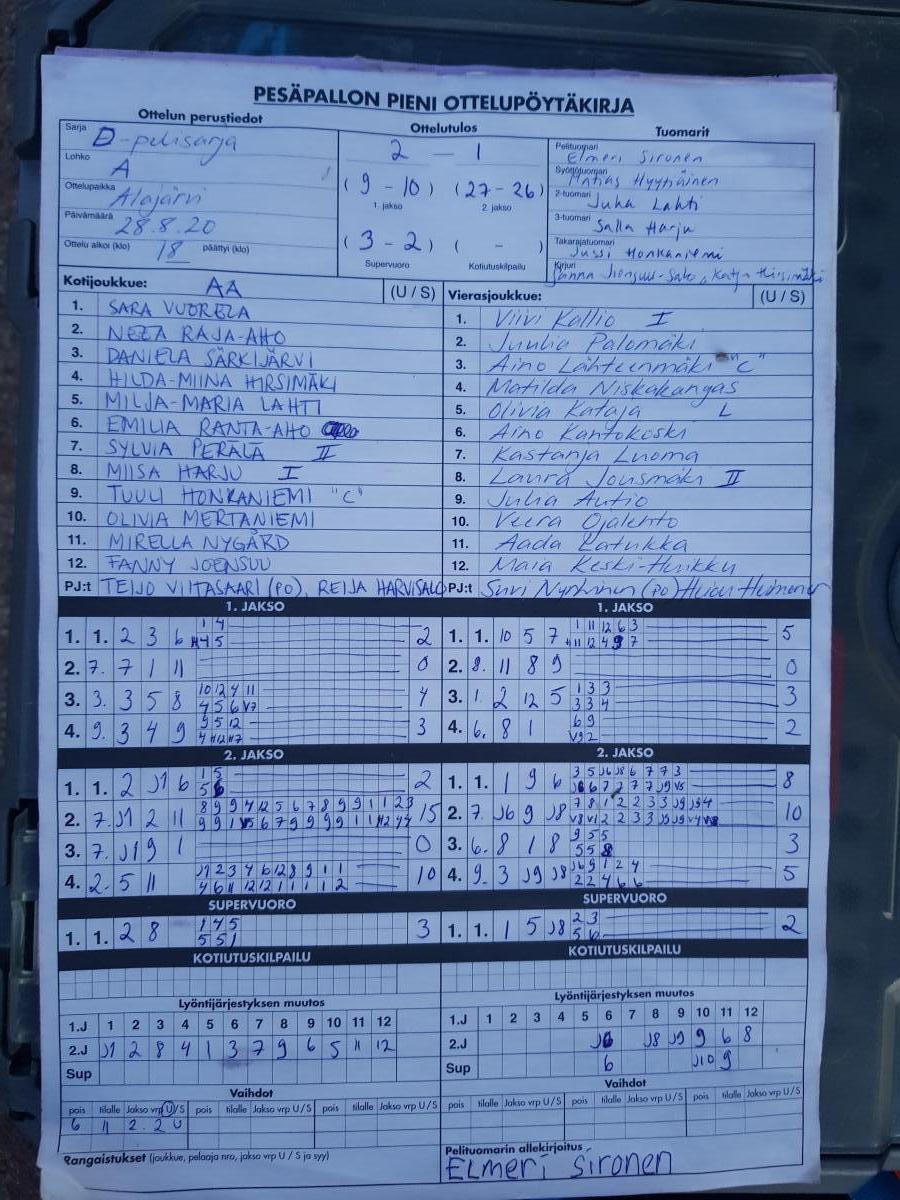 PESÄPALLON PIENI OTTELUPÖYTÄKIRJA
Ottelun perustiedot
Ottelutulos
Tuomarit
Sarja D-pelisarja
Lohko A
Ottelupaikka Alajärvi
Päivämäärä 28.8.20
Ottelu alkoi (klo) 18 päättyi (klo)
2 - 1
(9 - 10) (27 - 26)
1. jakso 2. jakso
(3 - 2) ( - )
Supervuoro Kotiutuskilpailu
Pelituomari Elmeri Sironen
Syöttötuomari Matias Hyytiäinen
2-tuomari Juha Lahti
3-tuomari Salla Harju
Takarajatuomari Jussi Honkaniemi
Kirjuri
Kotijoukkue: AA (U / S)
1. SARA VUORELA
2. NEEA RAJA-AHO
3. DANIELA SÄRKIJÄRVI
4. HILDA-MIINA HIRSIMÄKI
5. MILJA-MARIA LAHTI
6. EMILIA RANTA-AHO
7. SYLVIA PERÄLÄ II
8. MIISA HARJU I
9. TUULI HONKANIEMI "C"
10. OLIVIA MERTANIEMI
11. MIRELLA NYGÅRD
12. FANNY JOENSUU
PJ:t TEIJO VIITASAARI (PO), REIJA HARVISALO
Vierasjoukkue: (U / S)
1. Viivi Kallio I
2. Juulia Palomäki
3. Aino Lähteenmäki "C"
4. Matilda Niskakangas
5. Olivia Kataja L
6. Aino Kantokoski
7. Kastanja Luoma
8. Laura Jousmäki II
9. Julia Autio
10. Veera Ojalehto
11. Aada Latukka
12. Maia Keski-Heikku
PJ:t (PO)
1. JAKSO
1. 1. 2 3 6 2
2. 7. 7 1 11 0
3. 3. 3 5 8 4
4. 9. 3 4 9 3
1. JAKSO
1. 1. 10 5 7 5
2. 8. 11 8 9 0
3. 1. 2 12 5 3
4. 6. 8 1 2
2. JAKSO
1. 1. 2 J1 6 2
2. 7. J1 2 11 15
3. 7. J1 9 1 0
4. 2. 5 11 10
2. JAKSO
1. 1. 1 9 6 8
2. 7. J6 9 J8 10
3. 6. 8 1 8 3
4. 9. 3 J9 J8 5
SUPERVUORO
1. 1. 2 8 1 4 5 3
5 5 1
SUPERVUORO
1. 1. 1 5 J8 2 3 2
KOTIUTUSKILPAILU
KOTIUTUSKILPAILU
Lyöntijärjestyksen muutos
1.J 1 2 3 4 5 6 7 8 9 10 11 12
2.J J1 2 8 4 1 3 7 9 6 5 11 12
Sup
Lyöntijärjestyksen muutos
1.J 1 2 3 4 5 6 7 8 9 10 11 12
2.J J6 J8 J9 9 6 8
Sup 6 J10 9
Vaihdot
pois tilalle Jakso vrp U/S pois tilalle Jakso vrp U / S pois tilalle Jakso vrp U / S
6 11 2. 2 U
Vaihdot
pois tilalle Jakso vrp U / S pois tilalle Jakso vrp U / S pois tilalle Jakso vrp U / S
Rangaistukset (joukkue, pelaaja nro, jakso vrp U / S ja syy)
Pelituomarin allekirjoitus
Elmeri Sironen